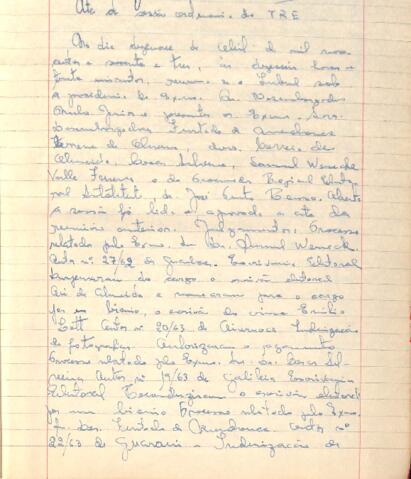 Ata da sessão ordinária do TRE
Ao dia dezenove de abril de mil nove
centos e sessenta e tres, às dezesseis horas e
trinta minutos, reuniu-se o Tribunal sob
a presidencia do Exmo. Sr. Desembargador
presentes os Exmos. Srs.
Desembargador Furtado de Mendonça
de Oliveira, drs.
de Almeida, Cesar Silveira, Samuel Werneck
Valle Ferreira e o dr Procurador Regional Eleito
ral Substituto, dr. José Pinto Renno. Aberta
a sessão foi lida e aprovada a ata da
reunião anterior. Julgamentos: Processo
relatado pelo Exmo. Sr. Dr. Samuel Werneck
Autos nº 27/62 de Escrivania Eleitoral
do cargo o escrivão eleitoral
de Almeida e nomearam para o cargo
por um bienio, o escrivão do crime Emilio
Autos nº 20/63 de Aimorés Indenização
de fotografias. Autorizaram o pagamento
Processo relatado pelo Exmo. Sr. Dr. Cesar Sil
veira Autos nº 19/63 de Galileia Escrivania
Eleitoral Reconduziram o escrivão eleitoral
por um bienio Processo relatado pelo Exmo.
Sr. Des. Furtado de Mendonça. Autos nº
22/63 de Guarani - Indenização de